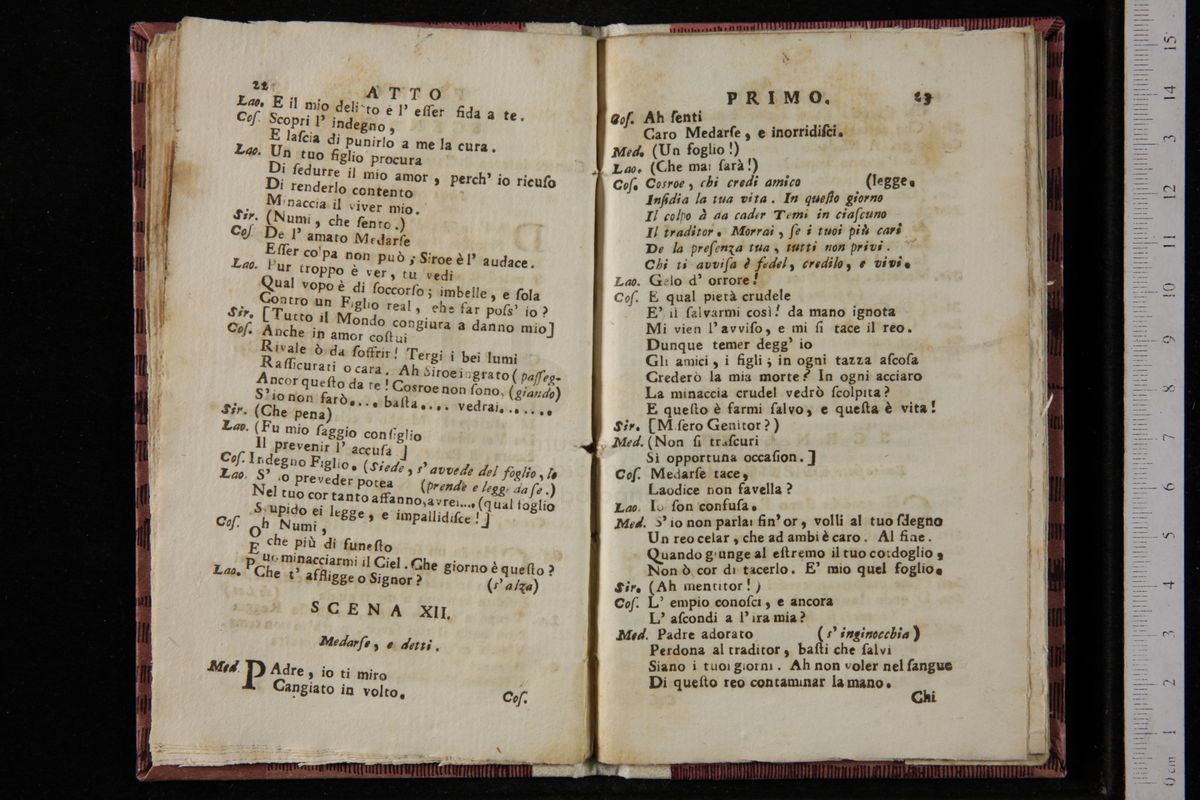 22 ATTO
Lao. E il mio delitto è l' eſſer fida a te.
Coſ. Scopri l' indegno,
E laſcia di punirlo a me la cura.
Lao. Un tuo figlio procura
Di ſedurre il mio amor, perch' io ricuſo
Di renderlo contento
Minaccia il viver mio.
Sir. (Numi, che ſento.)
Coſ De l' amato Medarſe
Eſſer colpa non può; Siroe è l' audace.
Lao. Pur troppo è ver, tu vedi
Qual vopo è di ſoccorſo; imbelle, e ſola
Contro un Figlio real, che far poſs' io?
Sir. [Tutto il Mondo congiura a danno mio]
Coſ. Anche in amor coſtui
Rivale ò da ſoffrir! Tergi i bei lumi
Raſſicurati o cara. Ah Siroe ingrato (paſſeg-
Ancor queſto da te! Cosroe non ſono, (giando)
S'io non farò.... baſta.... vedrai.......
Sir. (Che pena)
Lao. (Fu mio ſaggio conſiglio
Il prevenir l' accuſa]
Coſ. Indegno Figlio. (Siede, s' avvede del foglio, lo
Lao. S' io preveder potea (prende e legge da ſe.)
Nel tuo cor tanto affanno, avrei.... (qual foglio
Stupido ei legge, e impallidiſce!]
Coſ. Oh Numi,
E che più di funeſto
Può minacciarmi il Ciel. Che giorno è queſto?
Lao. Che t' affligge o Signor? (s' alza)
SCENA XII.
Medarſe, e detti.
Med. PAdre, io ti miro
Cangiato in volto.
Coſ.
PRIMO. 23
Coſ. Ah ſenti
Caro Medarſe, e inorridiſci.
Med. (Un foglio!)
Lao. (Che mai ſarà!)
Coſ. Cosroe, chi credi amico (legge.
Inſidia la tua vita. In queſto giorno
Il colpo à da cader Temi in ciaſcuno
Il traditor. Morrai, ſe i tuoi più cari
De la preſenza tua, tutti non privi.
Chi ti avviſa è fedel, credilo, e vivi.
Lao. Gelo d' orrore!
Coſ. E qual pietà crudele
E' il ſalvarmi così! da mano ignota
Mi vien l'avviſo, e mi ſi tace il reo.
Dunque temer degg' io
Gli amici, i figli; in ogni tazza aſcoſa
Crederò la mia morte? In ogni acciaro
La minaccia crudel vedrò ſcolpita?
E queſto è farmi ſalvo, e queſta è vita!
Sir. [Miſero Genitor?)
Med. (Non ſi traſcuri
Sì opportuna occaſion.]
Coſ. Medarſe tace,
Laodice non favella?
Lao. Io ſon confuſa.
Med. S'io non parlai fin'or, volli al tuo ſdegno
Un reo celar, che ad ambi è caro. Al fine.
Quando giunge al eſtremo il tuo cordoglio,
Non ò cor di tacerlo. E' mio quel foglio.
Sir. (Ah mentitor!)
Coſ. L' empio conoſci, e ancora
L' aſcondi a l'ira mia?
Med. Padre adorato (s' inginocchia)
Perdona al traditor, baſti che ſalvi
Siano i tuoi giorni. Ah non voler nel ſangue
Di queſto reo contaminar la mano.
Chi